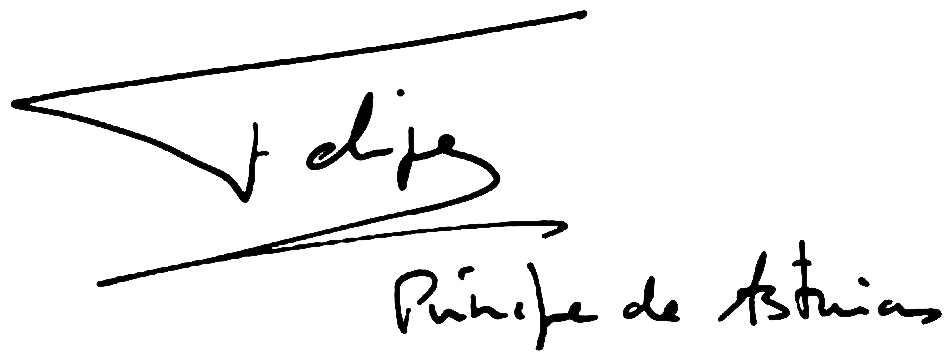 Felipe
Príncipe de Asturias